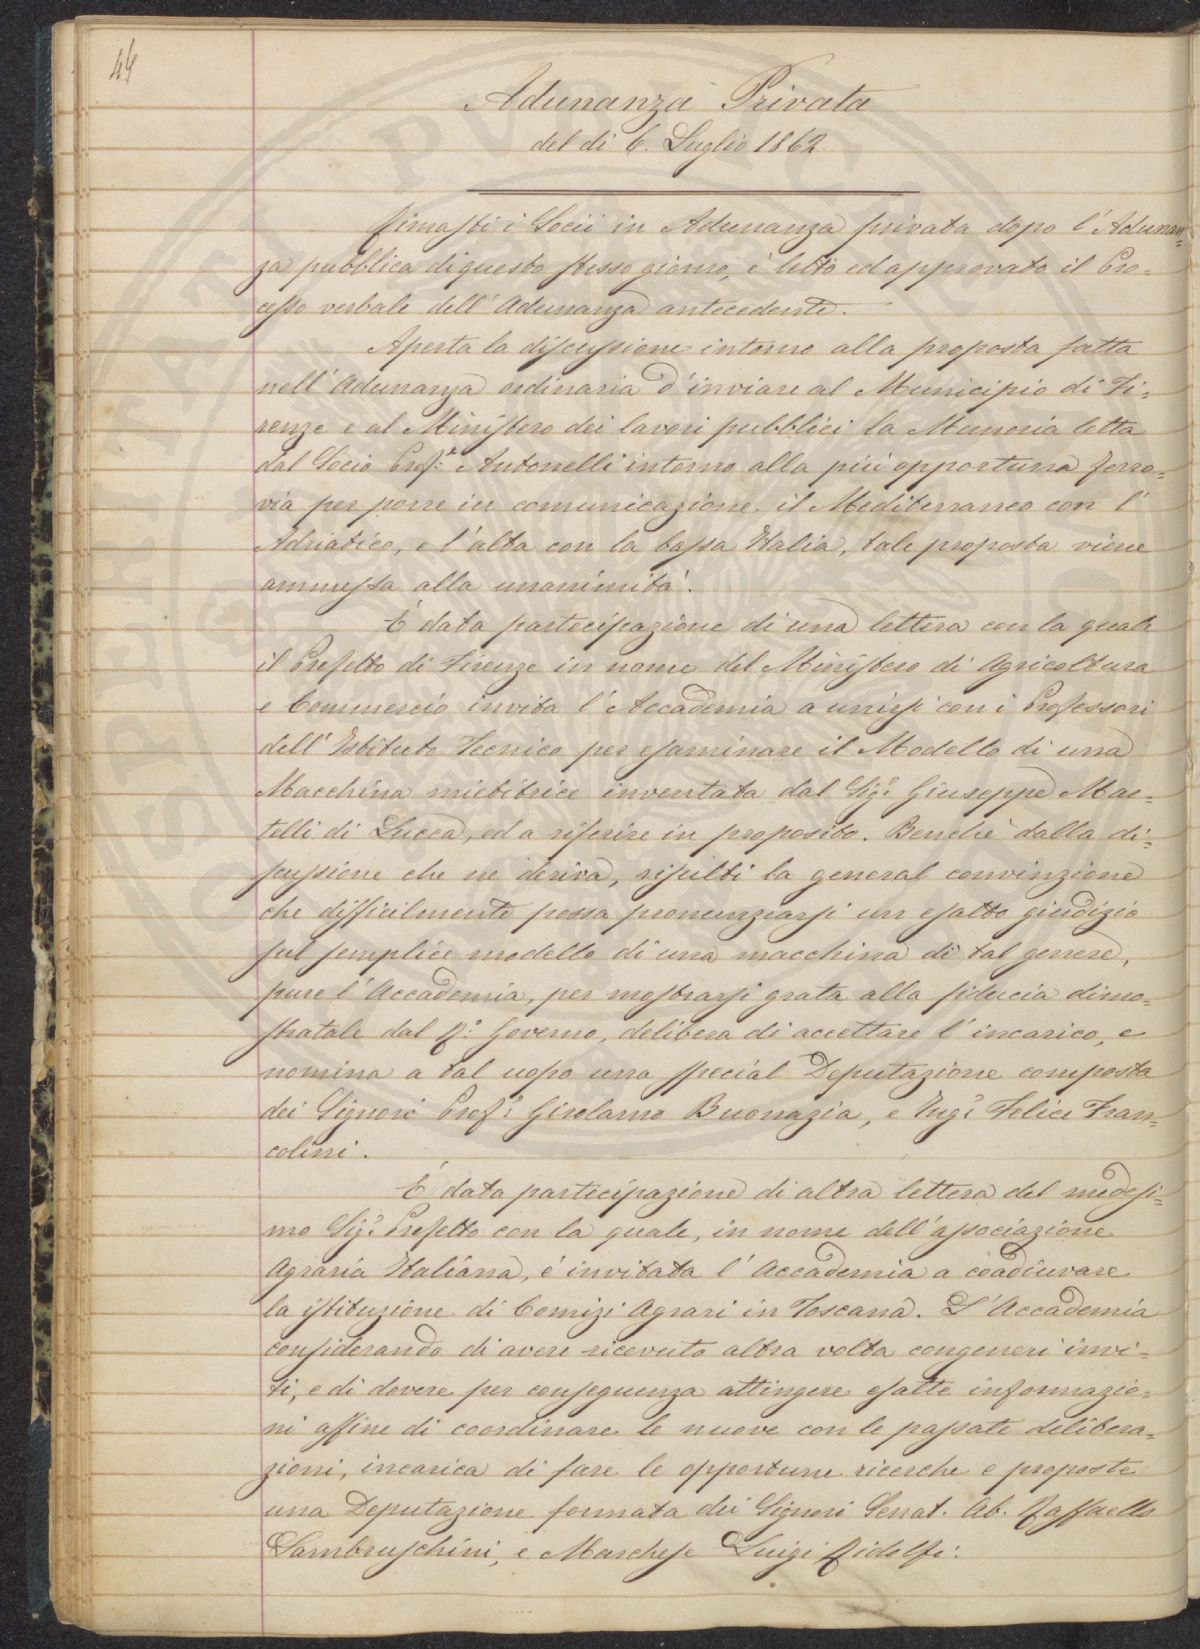 44
Adunanza Privata
del di 6. Luglio 1862
Rimasti i Socii in Adunanza privata dopo l'Adunan=
za pubblica di questo stesso giorno, è letto ed approvato il Pro=
cesso verbale dell'Adunanza antecedente.
Aperta la discussione intorno alla proposta fatta
nell'Adunanza ordinaria d'inviare al Municipio di Fi=
renze e al Ministero dei lavori pubblici la Memoria letta
dal Socio Prof.e Antonelli intorno alla più opportuna ferro=
via per porre in comunicazione il Mediterraneo con l'
Adriatico, e l'alta con la bassa Italia, tale proposta viene
ammessa alla unanimità.
È data partecipazione di una lettera con la quale
il Prefetto di Firenze in nome del Ministero di Agricoltura
e Commercio invita l'Accademia a unirsi con i Professori
dell'Istituto Tecnico per esaminare il Modello di una
Macchina mietitrice inventata dal Sig.r Giuseppe Mar=
telli di Lucca, ed a riferire in proposito. Benchè dalla di=
scussione che ne deriva, risulti la general convinzione
che difficilmente possa pronunziarsi un esatto giudizio
sul semplice modello di una macchina di tal genere,
pure l'Accademia, per mostrarsi grata alla fiducia dimo=
stratale dal R.o Governo, delibera di accettare l'incarico, e
nomina a tal uopo una special Deputazione composta
dei Signori Prof.r Girolamo Buonazia, e Ing.r Felice Fran=
colini.
È data partecipazione di altra lettera del medesi=
mo Sig.r Prefetto con la quale, in nome dell'associazione
Agraria Italiana, è invitata l'Accademia a coadiuvare
la istituzione di Comizi Agrari in Toscana. L'Accademia
considerando di avere ricevuto altra volta congeneri invi=
ti, e di dovere per conseguenza attingere esatte informazio=
ni affine di coordinare le nuove con le passate delibera=
zioni, incarica di fare le opportune ricerche e proposte
una Deputazione formata dei Signori Senat. Ab. Raffaello
Lambruschini, e Marchese Luigi Ridolfi.